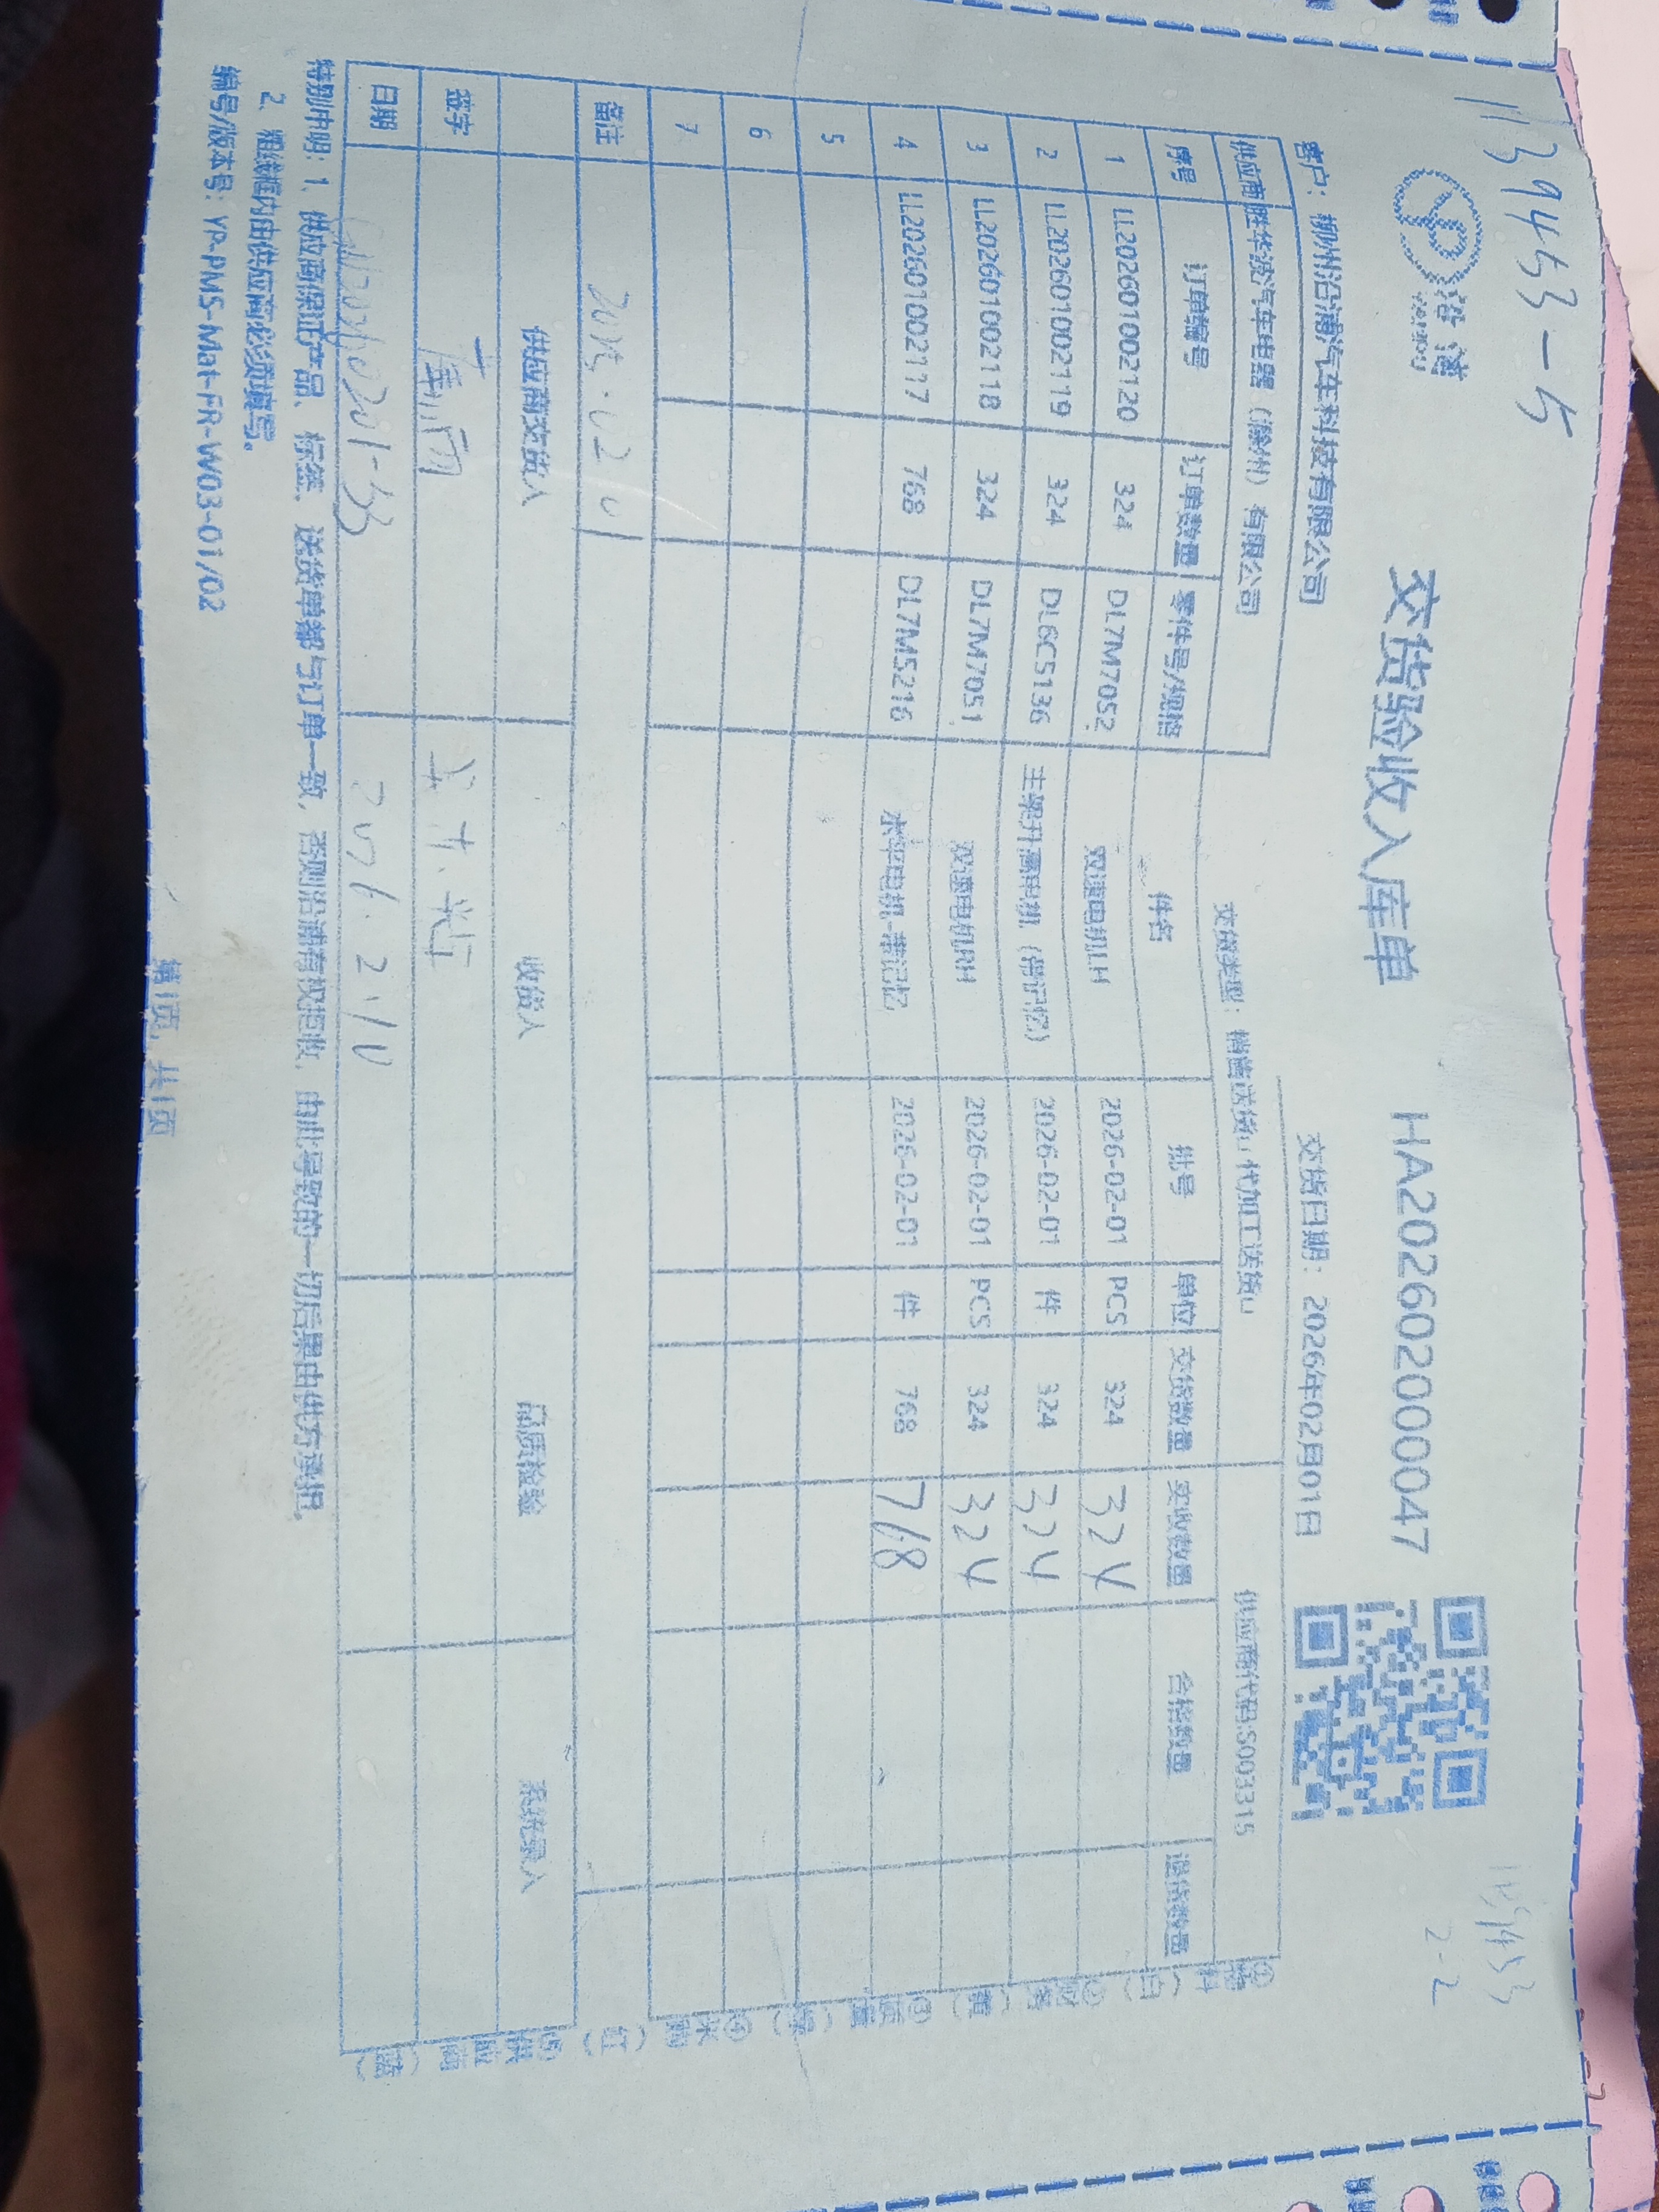 1139453-5
沿浦
交货验收入库单
HA202602000047
客户：柳州沿浦汽车科技有限公司
交货日期：2026年02月01日
供应商 胜华波汽车电器（滁州）有限公司
交货类型：销售送货□ 代加工送货□
供应商代码:S003315
序号 订单编号 订单数量 零件号/规格 件名 批号 单位 交货数量 实收数量 合格数量 退货数量
1 LL202601002120 324 DL7M7052 双速电机LH 2026-02-01 PCS 324 324
2 LL202601002119 324 DL6C5136 主架升高电机（带记忆） 2026-02-01 件 324 324
3 LL202601002118 324 DL7M7051 双速电机RH 2026-02-01 PCS 324 324
4 LL202601002117 768 DL7M5216 水平电机-带记忆 2026-02-01 件 768 768
5
6
7
备注
供应商交货人 收货人 品质检验 系统录入
签字
日期 2026.2.10
特别申明：1、供应商保证产品、标签、送货单都与订单一致，否则沿浦有权拒收，由此导致的一切后果由供方承担。
2、粗线框内由供应商必须填写。
编号/版本号：YP-PMS-Mat-FR-W03-01/02
第1页，共1页
2-2